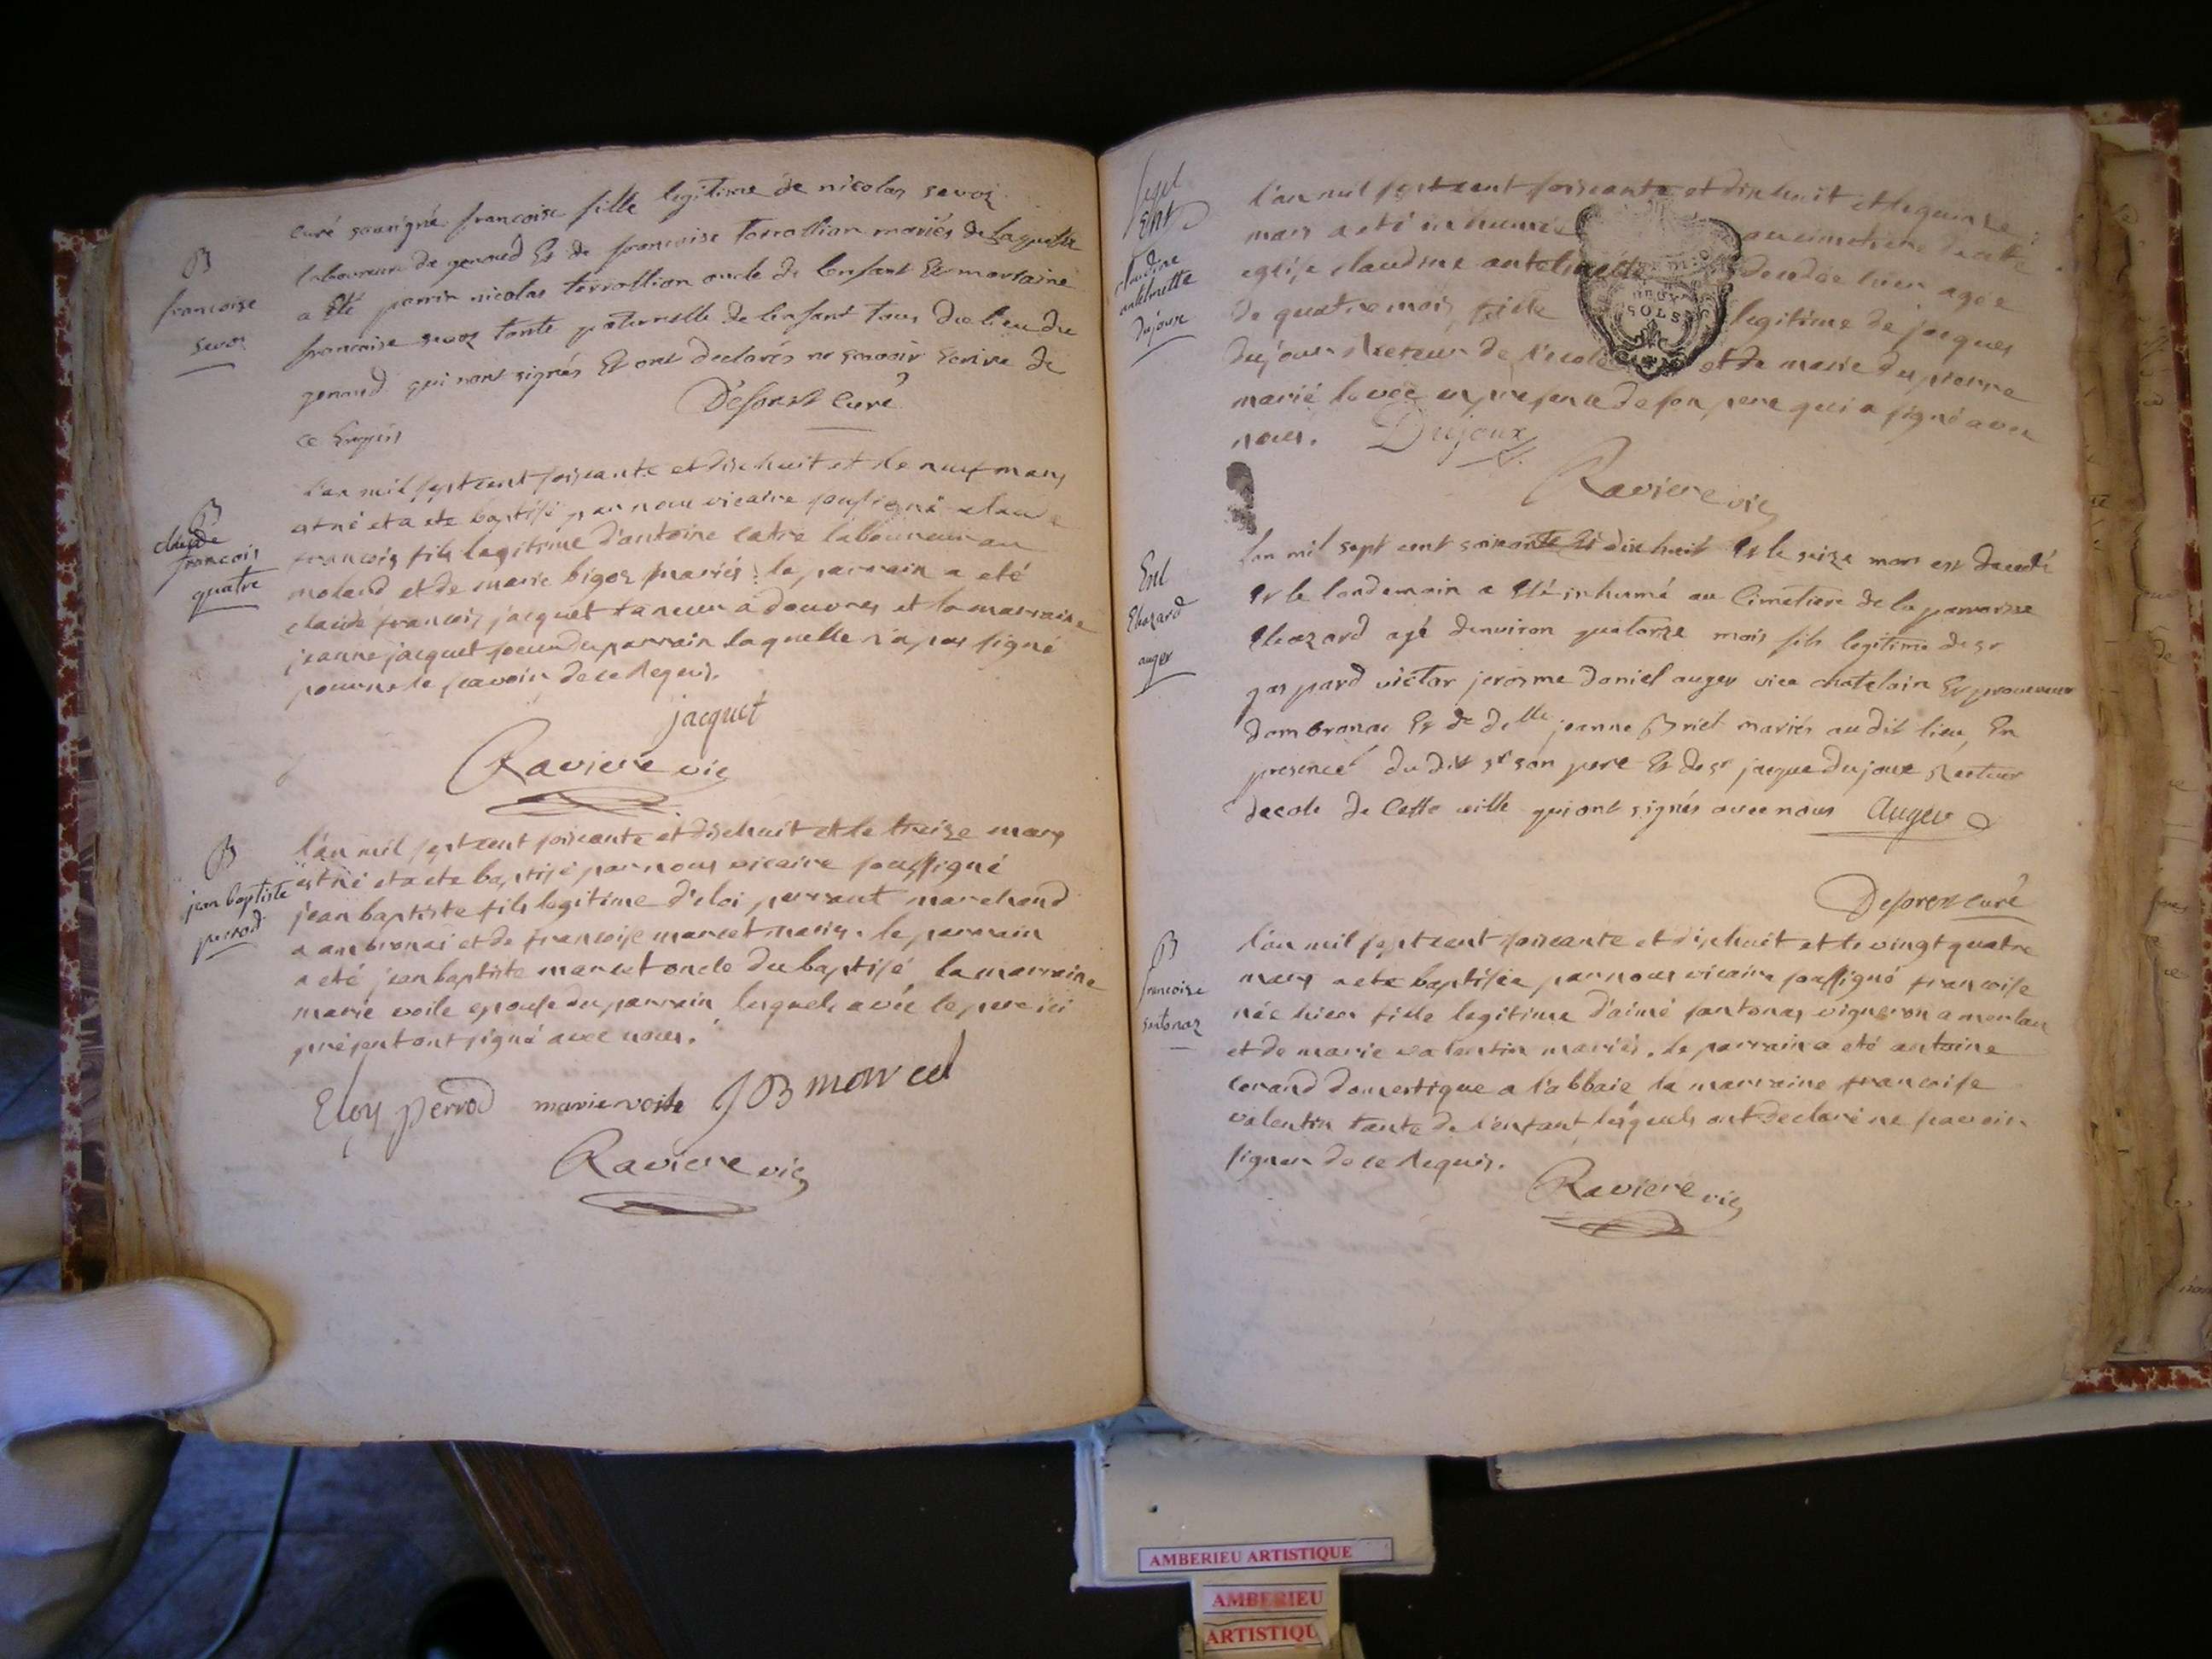 B
francoise
sevoz
curé soussigné francoise fille legitime de nicolas sevoz
laboureur de genoud Et de francoise terrollion mariés de laquelle
a Eté parrin nicolas terrollion oncle de lenfant Et marraine
francoise sevoz tante paternelle de lenfant tous du lieu du
genoud qui nont signés Et ont declarés ne scavoir Ecrire de
ce Enquis
Deforest curé
B
claude
francois
quatre
l'an mil sept cent soixante et dixhuit et le neuf mars
est né et a ete baptisé par nous vicaire soussigné claude
francois fils legitime d'antoine catre laboureur au
molard et de marie bigoz mariés. le parrain a eté
claude francois jacquet taneur a douvres et la marraine
jeanne jacquet soeur du parrain laquelle n'a pas signé
pour ne le scavoir de ce Requis.
jacquet
Raviere vic
B
jean baptiste
perrod
l'an mil sept cent soixante et dixhuit et le treize mars
est né et a ete baptisé par nous vicaire soussigné
jean baptiste fils legitime d'eloi perraut marchand
a ambronai et de francoise marcet mariés. le parrain
a eté jean baptiste marcet oncle du baptisé la marraine
marie voile epouse du parrain lesquels avec le pere ici
présent ont signé avec nous.
Eloy perrod marie voile J B marcel
Raviere vic
Sept
Ent
claudine
antelmette
dujoux
l'an mil sept cent soixante et dixhuit et le quinze
mars a eté inhumée au cimetiere de cette
eglise claudine antelmette decedée hier agée
de quatre mois fille legitime de jacques
dujoux Recteur de l'ecole et de marie dupierre
marié levée en presence de son pere qui a signé avec
nous. Dujoux
Raviere vic
SOLS
Ent
Eleazard
auger
lan mil sept cent soixante Et dix huit Et le seize mars est decedé
Et le landemain a Eté inhumé au Cimetiere de la parroisse
Eleazard agé denviron quatorze mois fils legitime de sr
gaspard victor jerosme daniel auger vice chatelain Et procureur
dambronac Et de delle jeanne Briel mariés au dit lieu, En
presence du dit sr son pere Et de sr jacque dujoux Recteur
decole de Cette ville qui ont signés avec nous Auger
Deforest curé
B
francoise
santonaz
l'an mil sept cent soixante et dixhuit et le vingt quatre
mars a ete baptisée par nous vicaire soussigné francoise
née hier fille legitime d'aimé santonas vigneron a merlan
et de marie valentin mariés. le parrain a eté antoine
corand domestique a l'abbaie la marraine francoise
valentin tante de l'enfant lesquels ont declaré ne scavoir
signer de ce Requis.
Raviere vic
AMBERIEU ARTISTIQUE
AMBERIEU
ARTISTIQU